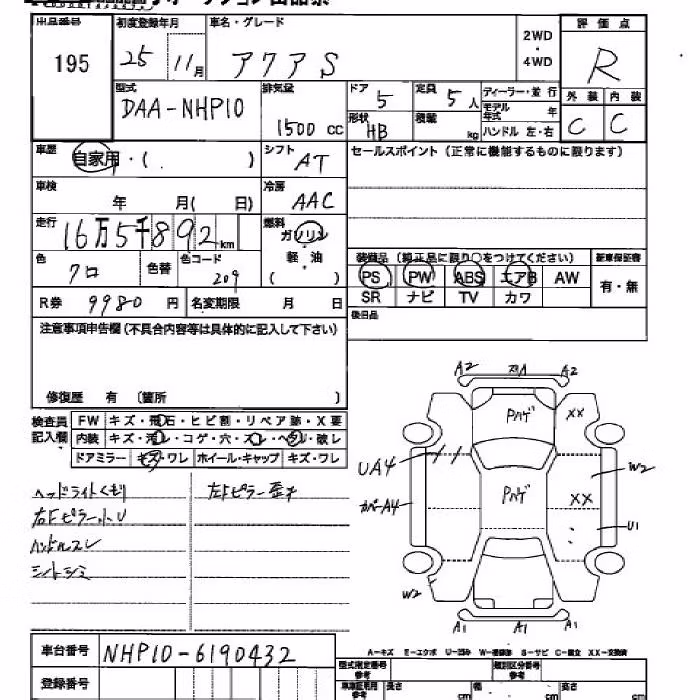 オークション出品票
出品番号 195
初度登録年月 25 11月
車名・グレード アクア S
2WD・4WD
評価点 R
型式 DAA-NHP10
排気量 1500 cc
ドア 5
定員 5人
形状 HB
積載 kg
ディーラー・並行
モデル年式 年
ハンドル 左・右
外装 C
内装 C
車歴 自家用・( )
シフト AT
セールスポイント(正常に機能するものに限ります)
車検 年 月( 日)
冷房 AAC
走行 16万5千892km
燃料 ガソリン 軽・油 ( )
色 クロ
色替
色コード 209
装備品(純正品に限り○をつけてください)
PS PW ABS エアB AW
SR ナビ TV カワ
新車保証書 有・無
R券 9980円
名変期限 月 日
後日品
注意事項申告欄(不具合内容等は具体的に記入して下さい)
修復歴 有 〔箇所 〕
検査員記入欄
FW キズ・飛石・ヒビ割・リペア跡・X要
内装 キズ・汚レ・コゲ・穴・スレ・ヘタリ・破レ
ドアミラー キズ・ワレ ホイール・キャップ キズ・ワレ
ヘッドライトくもり
左Fピラー歪み
右Fピラー小U
ハンドルスレ
シートシミ
A2 A2
Pハゲ XX
UA4 W2
Pハゲ XX
カバーA4 U1
W2
A1 A1 A1
A-キズ E-エクボ U-凹み W-補修跡 S-サビ C-腐食 XX-交換済
車台番号 NHP10-6190432
登録番号
型式指定番号 参考
類別区分番号 参考
車車証明用 参考
長さ cm
幅 cm
高さ cm